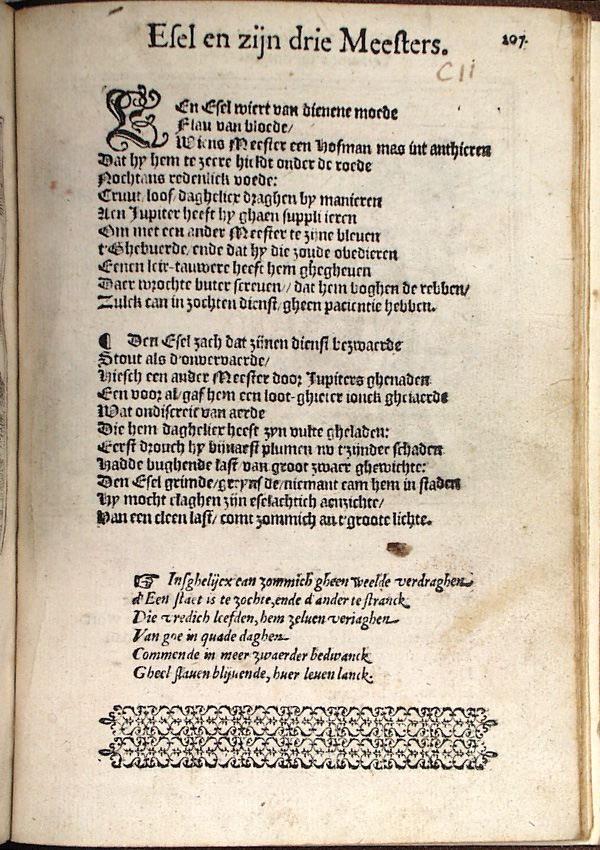 Esel en zijn drie Meesters.
207.
C11
EEn Esel wiert van dienene moede
Flau van bloede/
Wiens Meester een Hofman was int anthieren
Dat hy hem te zeere hieldt onder de roede
Nochtans redenlick voede:
Cruut/ loof/ daghelicx draghen by manieren
Aen Jupiter heeft hy ghaen supplieren
Om met een ander Meester te zijne bleven
t'Ghebuerde/ ende dat hy die zoude obedieren
Eenen leir-tauwere heeft hem ghegheven
Daer wrochte buter screven// dat hem boghen de rebben/
Zulck can in zochten dienst/ gheen pacientie hebben.
¶ Den Esel zach dat zijnen dienst bezwaerde
Stout als d'onvervaerde/
Hiesch een ander Meester door Jupiters ghenaden
Een voor al/ gaf hem een loot-ghieter ionck ghejaerde
Wat ondiscreit van aerde
Die hem daghelicx heeft zyn vulte gheladen:
Eerst drouch hy bijnaest plumen nv t'zijnder schaden
Hadde bughende last van groot zwaer ghewichte:
Den Esel grimde/ greynsde/ niemant cam hem in staden
Hy mocht claghen zijn eselachtich aenzichte/
Van een cleen last/ comt zommich an t'groote lichte.
☞ Insghelijcx can zommich gheen weelde verdraghen
d'Een staet is te zochte, ende d'ander te stranck
Die vredich leefden, hem zelven veriaghen
Van goe in quade daghen
Commende in meer zwaerder bedwanck
Gheel slaven blijvende, huer leven lanck.